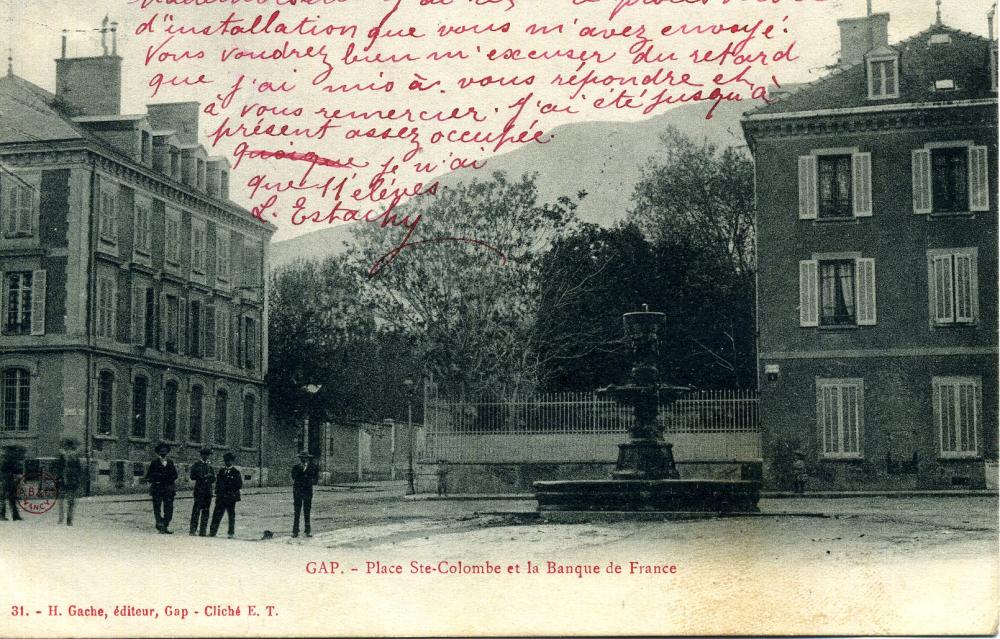 Mademoiselle j'ai reçu le procès verbal
d'installation que vous m'avez envoyé.
Vous voudrez bien m'excuser du retard
que j'ai mis à vous répondre et
à vous remercier. J'ai été jusqu'à
présent assez occupée
quoique je n'ai
que 11 élèves
L. Estachy
GAP. - Place Ste-Colombe et la Banque de France
31. - H. Gache, éditeur, Gap - Cliché E. T.
NANCY